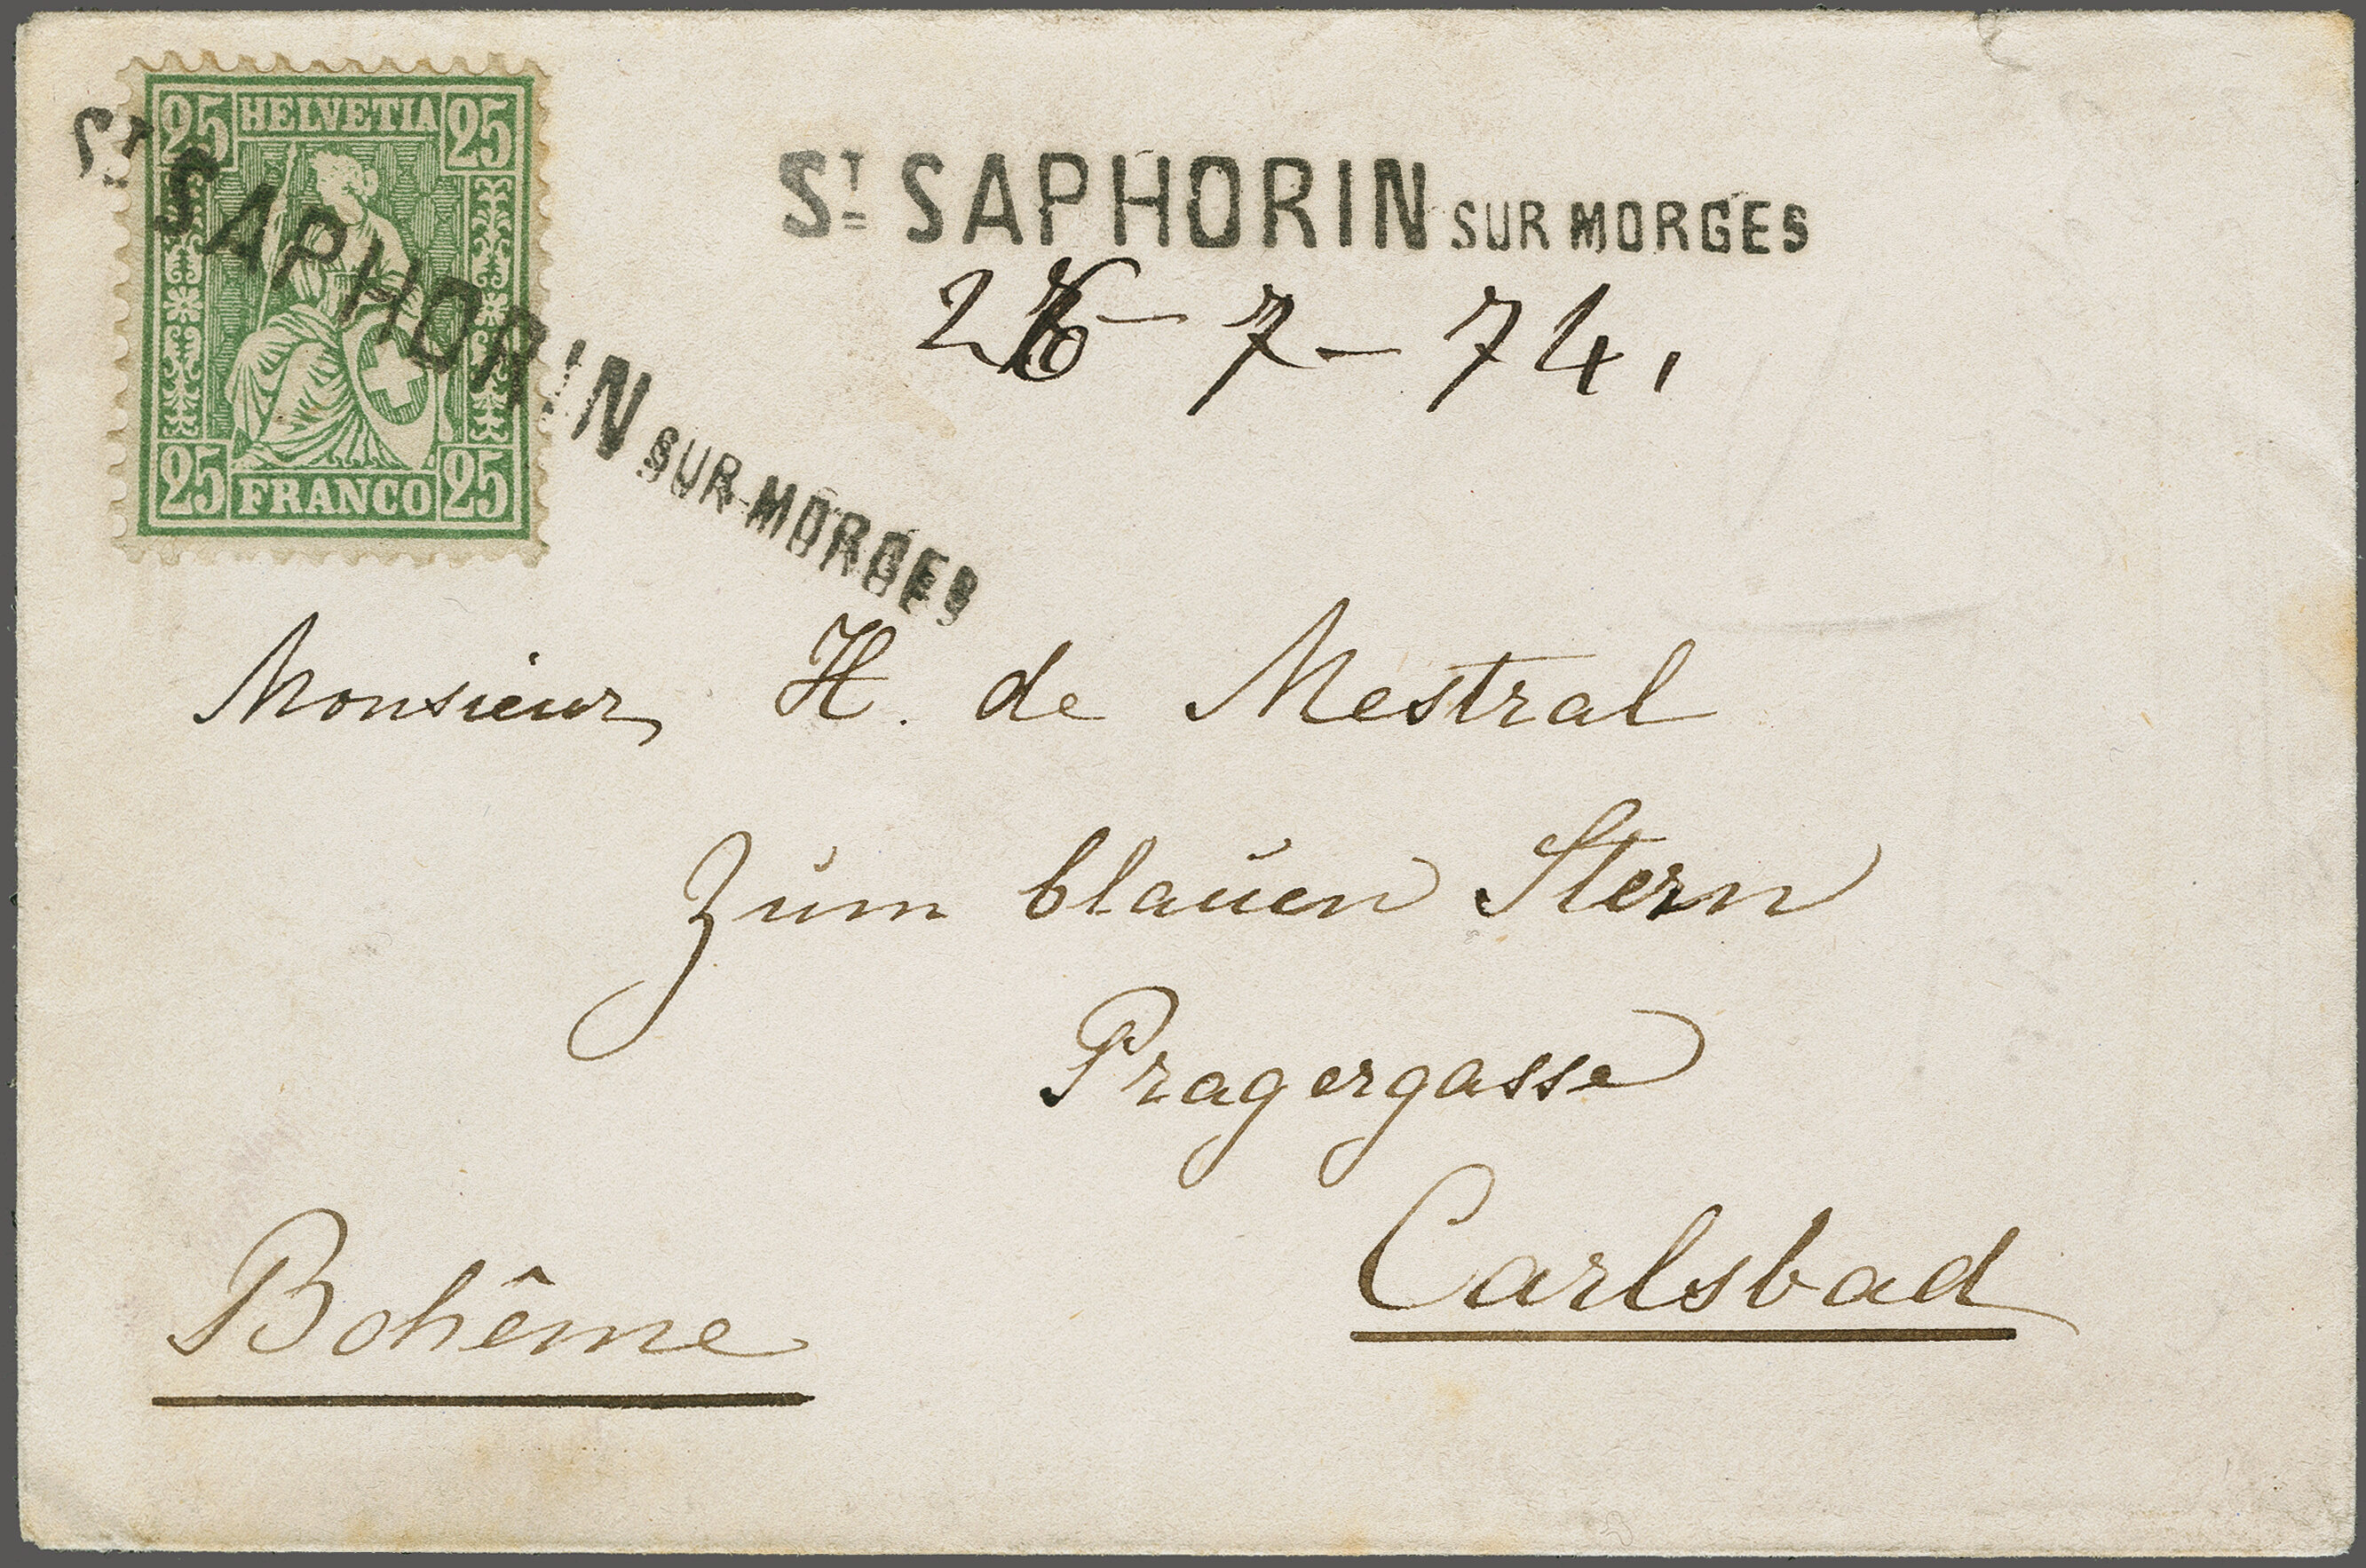 25 HELVETIA 25
25 FRANCO 25
St SAPHORIN SUR MORGES
St SAPHORIN SUR MORGES
26 - 7 - 74.
Monsieur H. de Mestral
Zum blauen Stern
Pragergasse
Carlsbad
Bohême